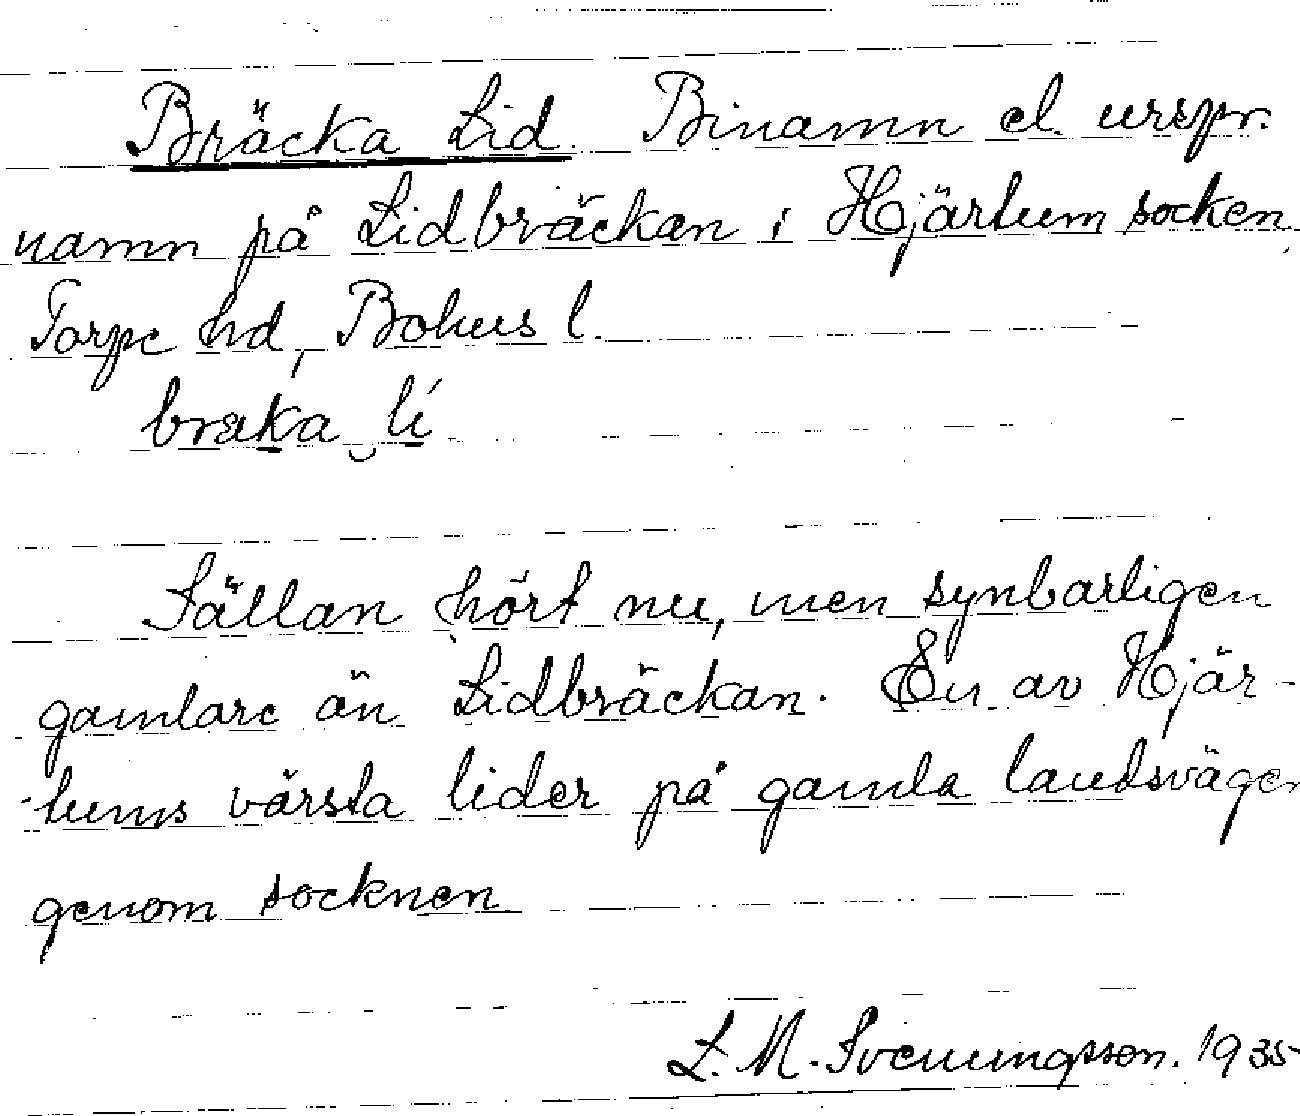 Bräcka Lid. Binamn el. urspr.
namn på Lidbräckan i Hjärtum socken,
Torpe hd, Bohus l.
braka lí
Sällan hört nu, men synbarligen
gamlare än Lidbräckan. En av Hjär-
tums värsta lider på gamla landsvägen
genom socknen
L. M. Svenungsson. 1935